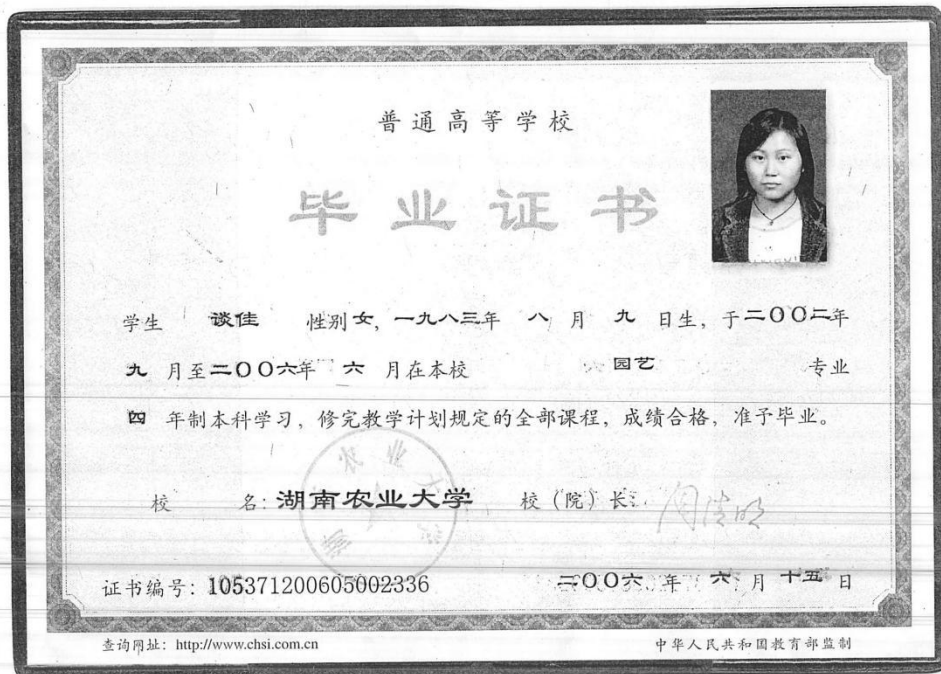 普通高等学校
毕业证书
学生 谈佳 性别 女, 一九八三年 八 月 九 日生, 于二〇〇二年
九 月至二〇〇六年 六 月在本校 园艺 专业
四 年制本科学习, 修完教学计划规定的全部课程, 成绩合格, 准予毕业。
校 名: 湖南农业大学 校 (院) 长: 周清明
证书编号: 105371200605002336 二〇〇六 年 六 月 十五 日
查询网址: http://www.chsi.com.cn 中华人民共和国教育部监制